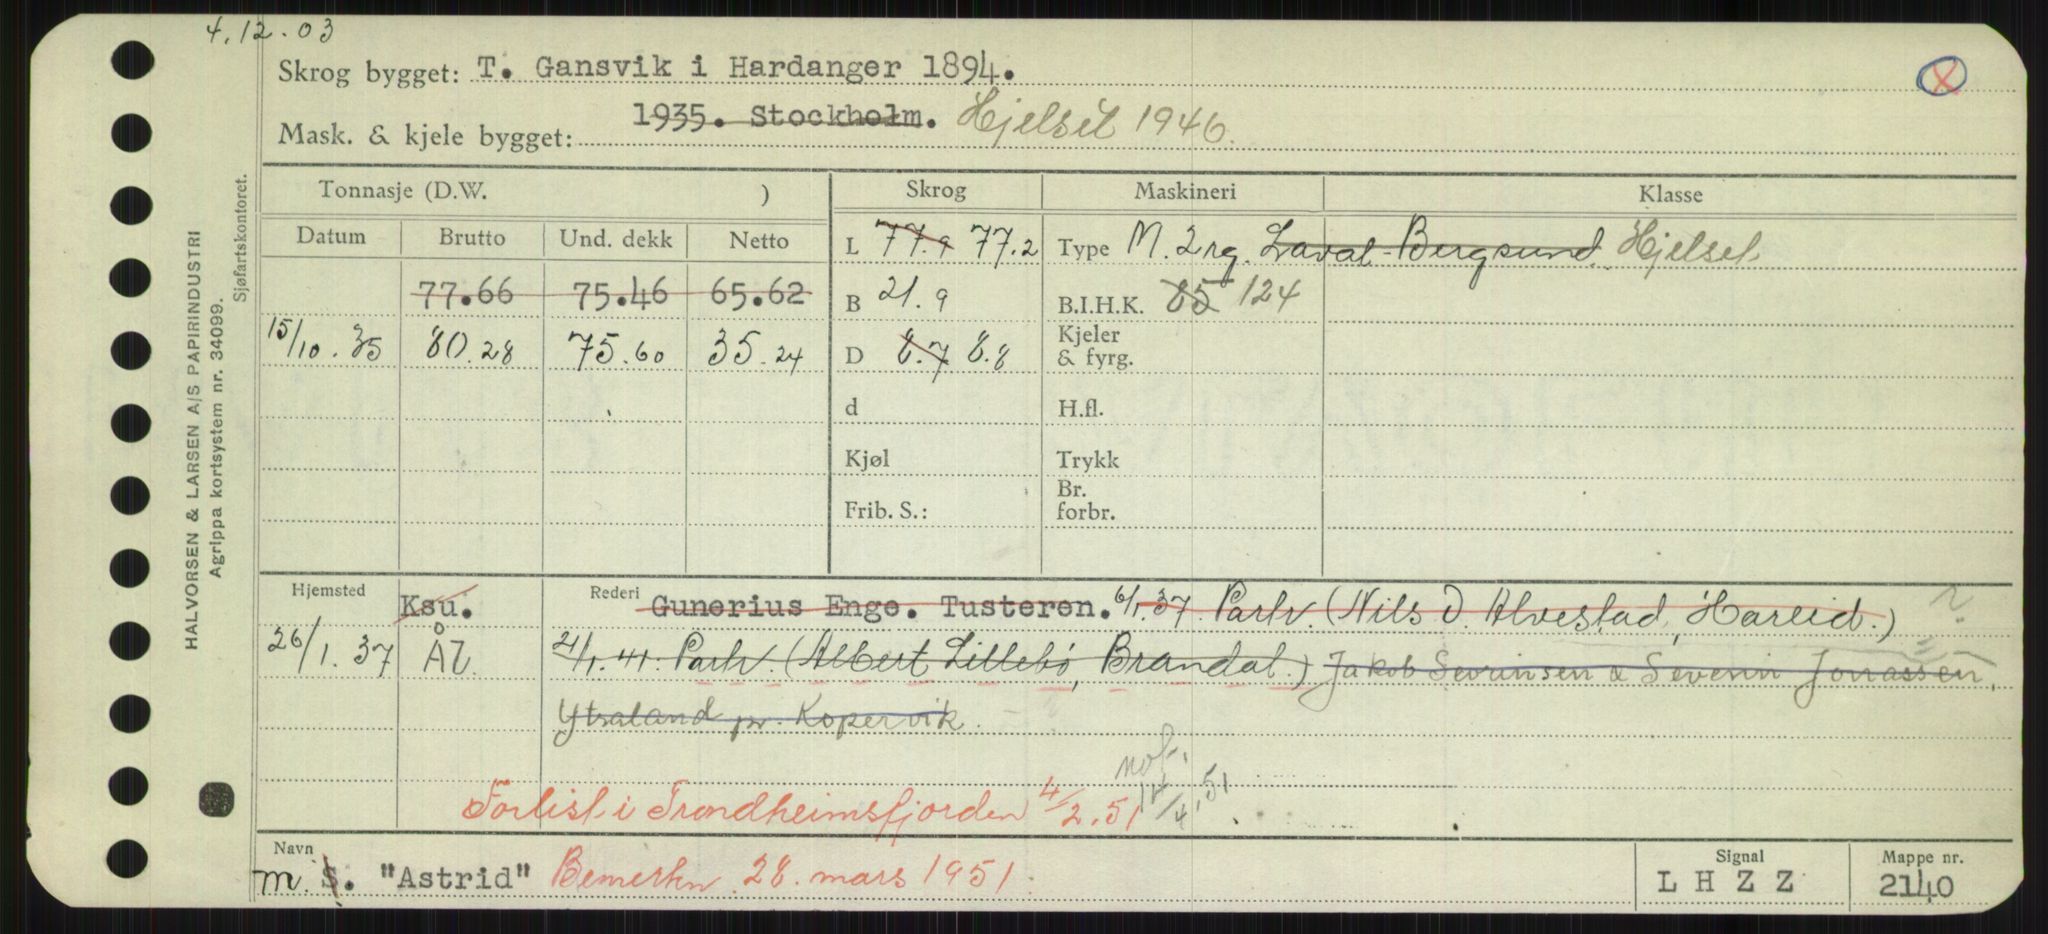 4.12.03
Skrog bygget: T. Gansvik i Hardanger 1894.
Mask. & kjele bygget: 1935. Stockholm. Hjelset 1946.
Tonnasje (D.W. ) Skrog Maskineri Klasse
Datum Brutto Und. dekk Netto L 77.9 77.2 Type M. 2 rg. Laval-Bergsund. Hjelset
77.66 75.46 65.62 B 21.9 B.I.H.K. 85 124
15/10.35 80.28 75.60 35.24 D 8.7 8.8 Kjeler & fyrg.
d H.fl.
Kjøl Trykk
Frib. S.: Br. forbr.
Hjemsted Ksu. Rederi Gunerius Enge. Tusteren. 6/1.37. Partr. (Nils O. Alvestad, Hareid.) ?
26/1.37 ÅL 21/1.41. Partr. (Albert Lillebø, Brandal.) Jakob Severinsen & Severin Jonassen,
Ytraland pr. Kopervik.
Forlist i Trondheimsfjorden 4/2.51 not. 14/4.51
Navn m. S. "Astrid" Bemerkn. 28. mars 1951. Signal LHZZ Mappe nr. 2140
HALVORSEN & LARSEN A/S PAPIRINDUSTRI
Agrippa kortsystem nr. 34099.
Sjøfartskontoret.